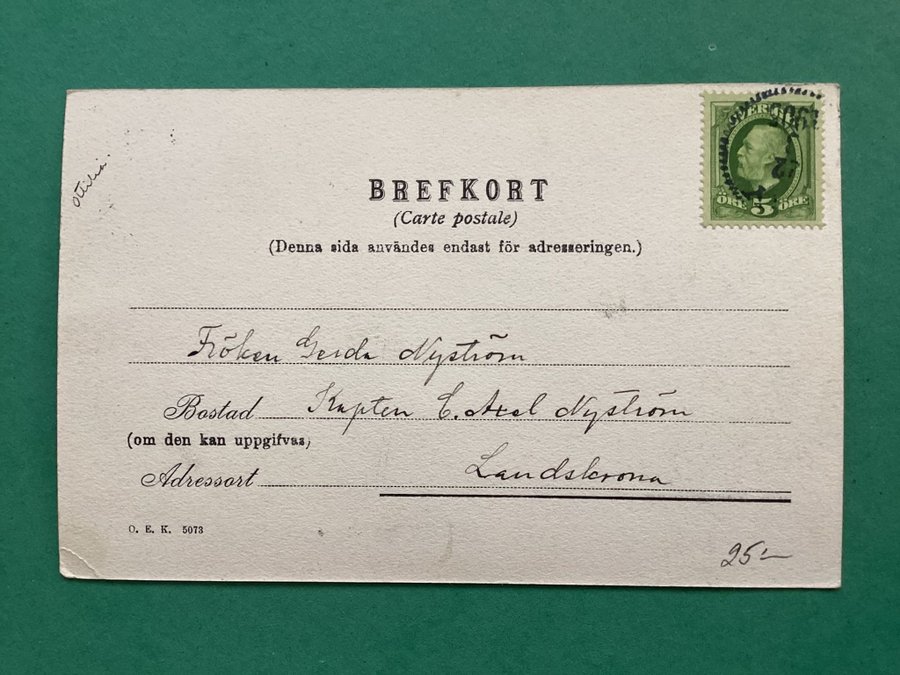 Ottilia.
SVERIGE
1905
ÖRE 5 ÖRE
BREFKORT
(Carte postale)
(Denna sida användes endast för adresseringen.)
Fröken Gerda Nyström
Bostad Kapten C. Axel Nyström
(om den kan uppgifvas)
Adressort Landskrona
O. E. K. 5073
25:-